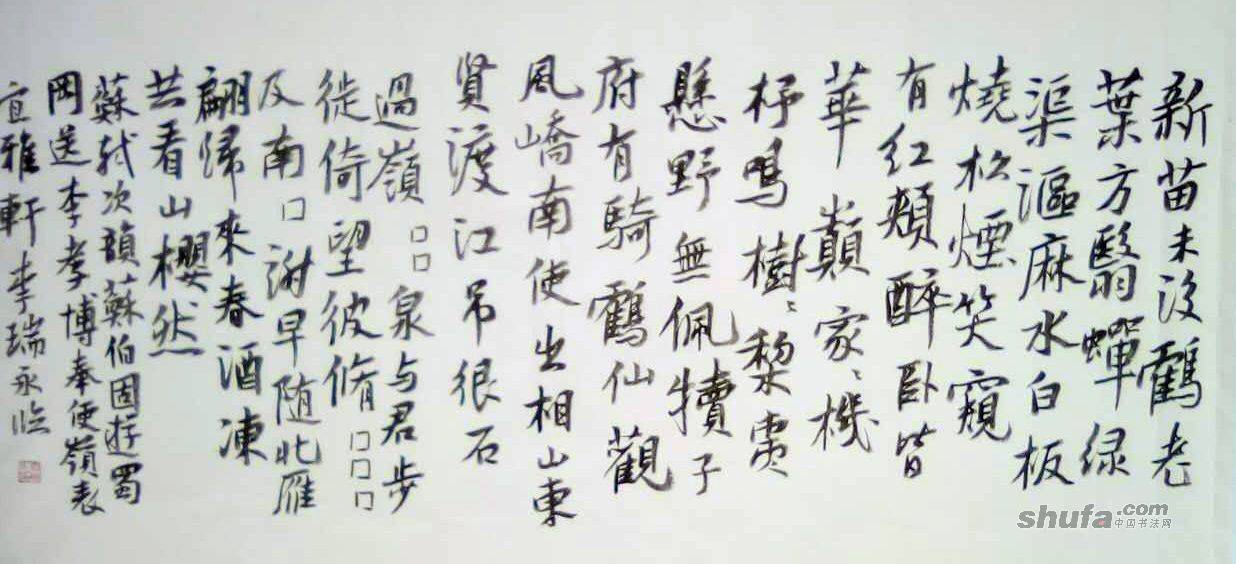 新苗未没鶴老
葉方翳蟬绿
渠漚麻水白板
燒松煙笑窺
有红頰醉卧皆
華巔家〻機
杼鳴樹〻梨棗
懸野無佩犢子
府有騎鶴仙觀
風嶠南使出相山東
賢渡江吊很石
過嶺□□泉与君步
徙倚望彼脩□□□
及南□谢早随北雁
翩归來春酒凍
共看山櫻然
蘇軾次韻蘇伯固遊蜀
岡送李孝博奉使嶺表
宜雅軒 李瑞永临
shufa.com
中国书法网